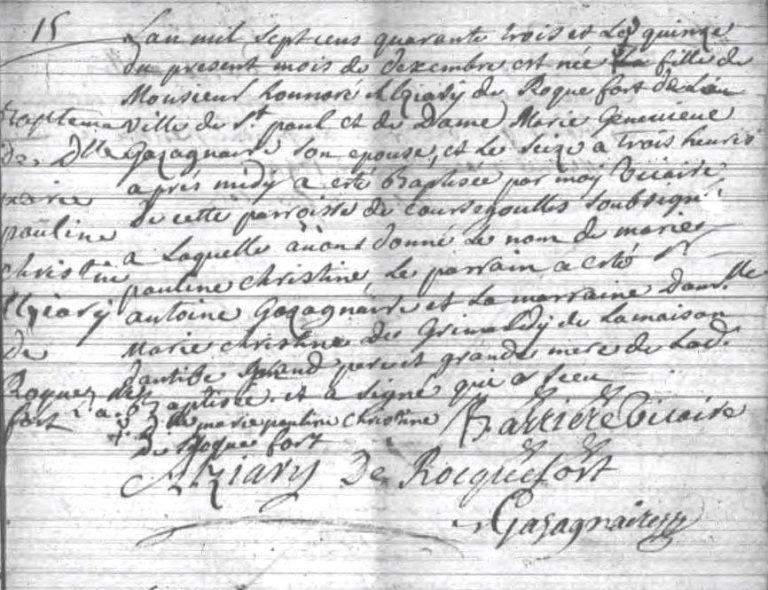 15
Baptême
de Dlle
marie
pauline
christine
Alziary
de
Roque
fort
L'an mil sept cens quarante trois et Le quinze
du present mois de decembre est née La fille de
Monsieur honnoré Alziary de Roque fort de
ville de St paul et de Dame Marie Genevieve
Gazagnaire son epouse, et Le Seize a trois heures
aprés midy a esté Baptisée par moy Vicaire
de cette parroisse de coursegoulles soubsigné
a Laquelle avons donné Le nom de marie
pauline christine, Le parrain a esté
antoine Gazagnaire et La marraine damlle
Marie christine des Grimaldy de Lamaison
dantibe Grand pere et grande mere de Lad.
Baptisée. et a signé qui a sceu
de marie pauline christine
de Roque fort
Barriere Vicaire
Alziary De Rocquefort
Gazagnaire